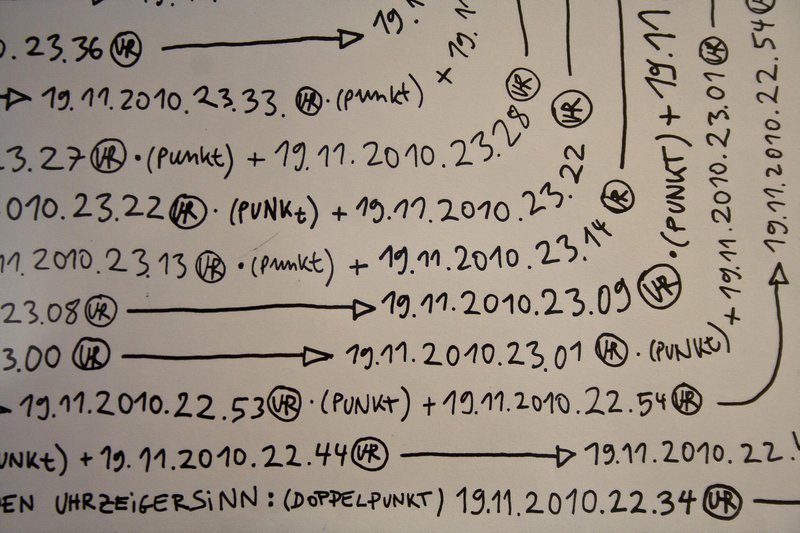 0.23.36 UHR → 19.1
→ 19.11.2010.23.33. UHR . (Punkt) + 19.1
3.27 UHR . (Punkt) + 19.11.2010.23.28 UHR
010.23.22 UHR . (PUNKt) + 19.11.2010.23.22 UHR
11.2010.23.13 UHR . (Punkt) + 19.11.2010.23.14 UHR
23.08 UHR → 19.11.2010.23.09 UHR . (PUNKT) + 19.11
3.00 UHR → 19.11.2010.23.01 UHR . (PUNKt) + 19.11.2010.23.01 UHR
→ 19.11.2010.22.53 UHR . (PUNKT) + 19.11.2010.22.54 UHR → 19.11.2010.22.54 UHR
UNKt) + 19.11.2010.22.44 UHR → 19.11.2010.22.4
EN UHRZEiGERSiNN : (DOPPELPUNKT) 19.11.2010.22.34 UHR